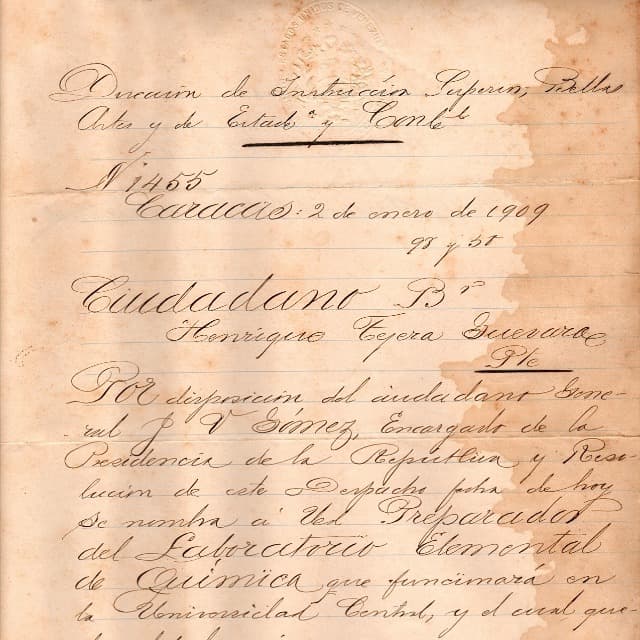 Dirección de Instrucción Superior, Bellas
Artes y de Estadca y Contbe
N° 1455
Caracas: 2 de enero de 1909
98 y 51
Ciudadano Br
Henrique Tejera Guevara
Pte
Por disposición del ciudadano Gene-
ral J V Gómez, Encargado de la
Presidencia de la República y Reso-
lución de este Despacho fecha de hoy
se nombra á Ud Preparador
del Laboratorio Elemental
de Química que funcionará en
la Universidad Central, y el cual que-